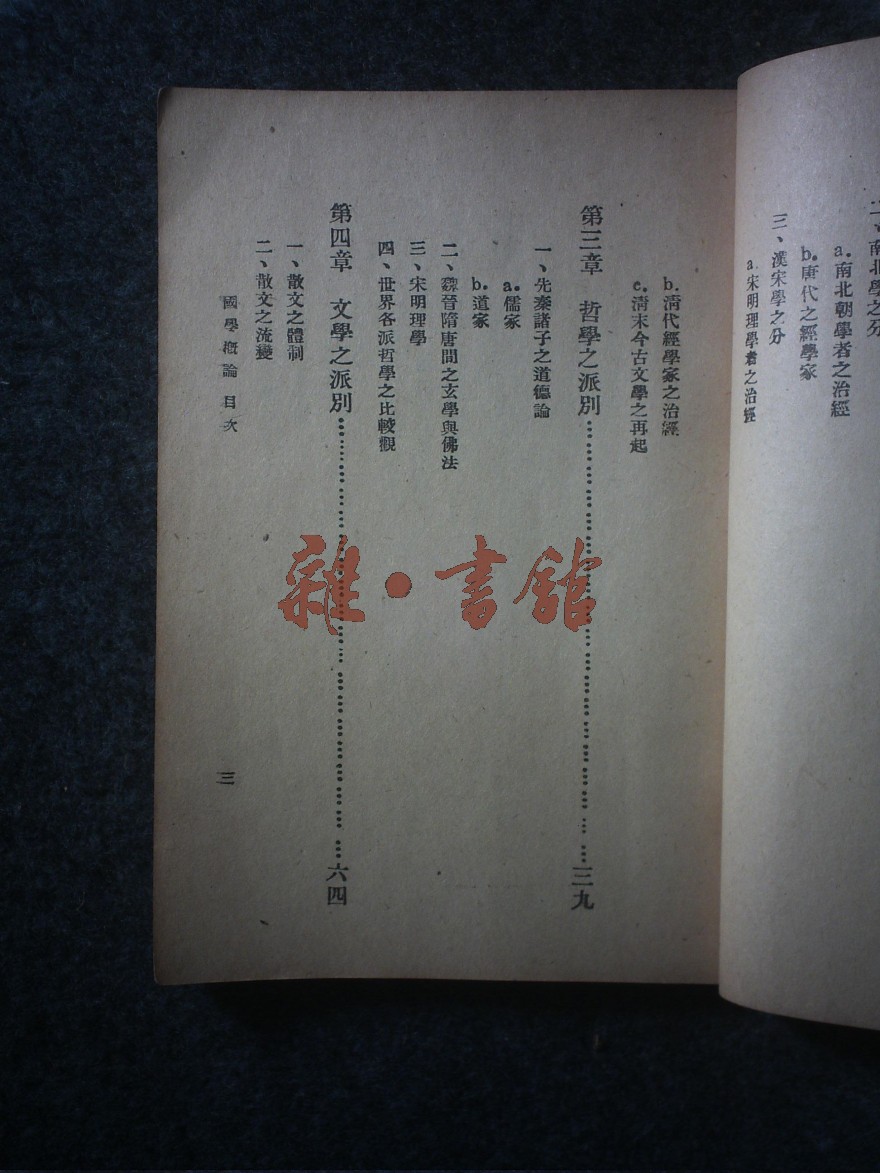 二、南北學之分
a.南北朝學者之治經
b.唐代之經學家
三、漢宋學之分
a.宋明理學者之治經
b.清代經學家之治經
c.清末今古文學之再起
第三章　哲學之派別…………三九
一、先秦諸子之道德論
a.儒家
b.道家
二、魏晉隋唐間之玄學與佛法
三、宋明理學
四、世界各派哲學之比較觀
第四章　文學之派別…………六四
一、散文之體制
二、散文之流變
國學概論　目次
三
雜・書館